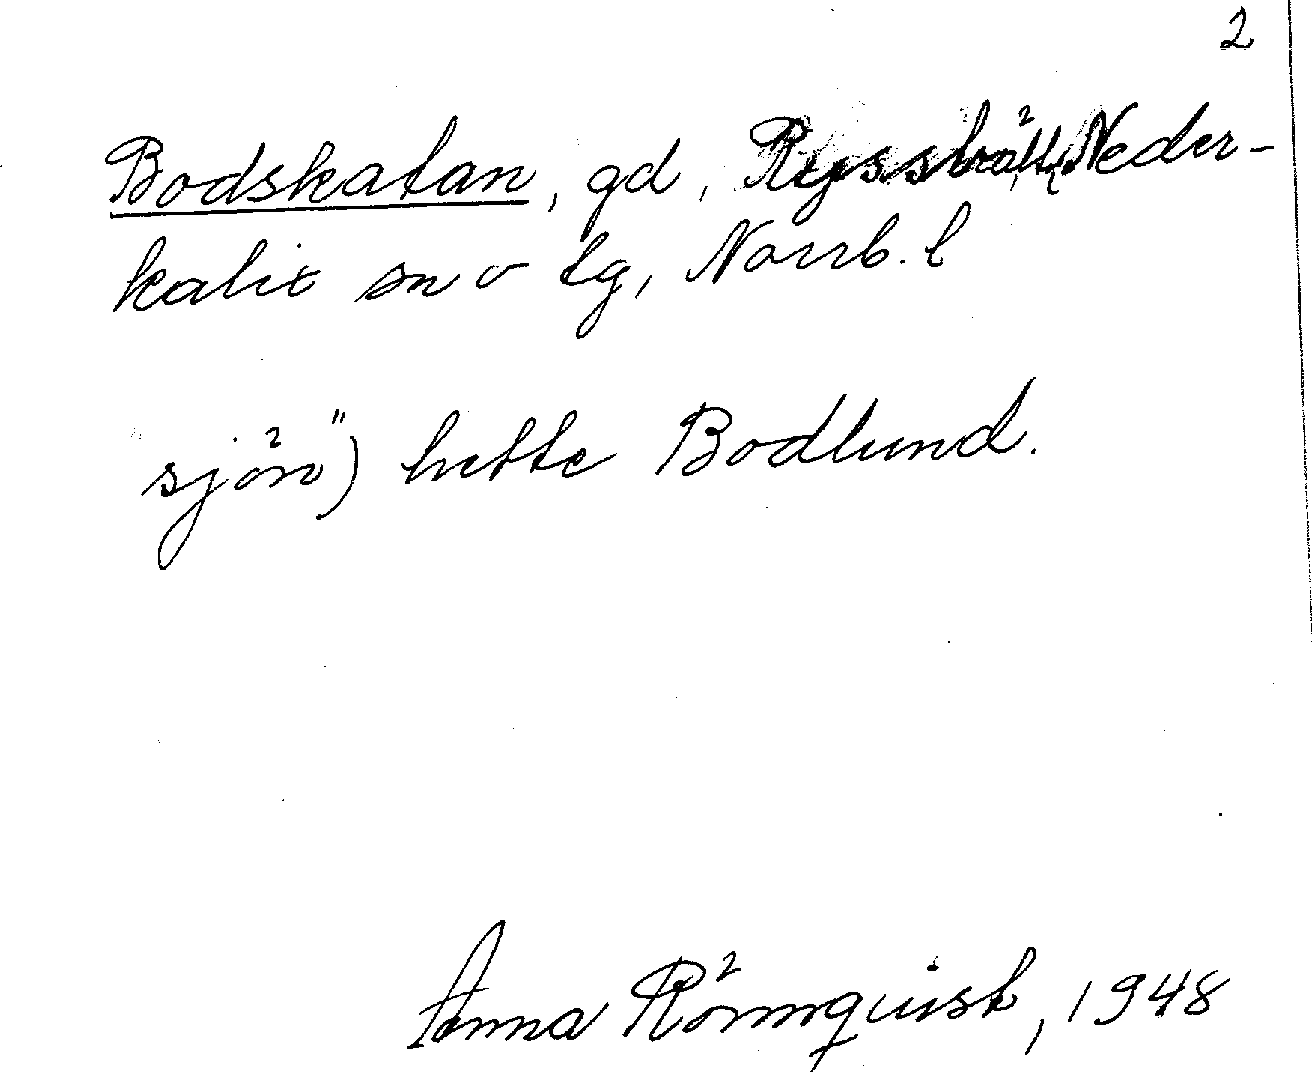 2
Bodskatan, gd, Ryssbält, Neder-
kalix sn o tg, Norrb. l
sjön") hette Bodlund.
Anna Rönnquist, 1948